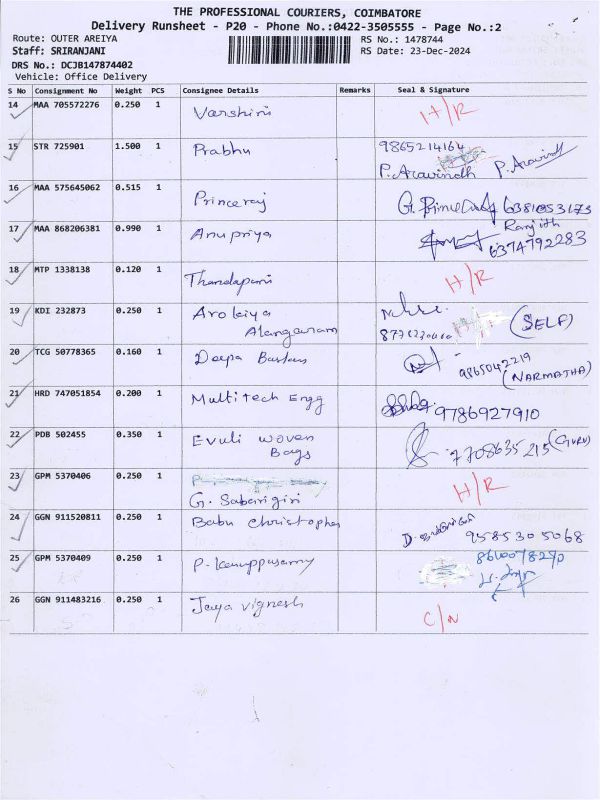 THE PROFESSIONAL COURIERS, COIMBATORE
Delivery Runsheet - P20 - Phone No.:0422-3505555 - Page No.:2
Route: OUTER AREIYA
RS No.: 1478744
Staff: SRIRANJANI
RS Date: 23-Dec-2024
DRS No.: DCJB147874402
Vehicle: Office Delivery
S No Consignment No Weight PCS Consignee Details Remarks Seal & Signature
14 MAA 705572276 0.250 1 Varshini H/R
15 STR 725901 1.500 1 Prabhu 9865214164
P.Aravindh P. Aravindh
16 MAA 575645062 0.515 1 Princeraj 6381053173
17 MAA 868206381 0.990 1 Anupriya Ranjith
6374792283
18 MTP 1338138 0.120 1 Thandapani H/R
19 KDI 232873 0.250 1 Arokiya (SELF)
Alangaram
20 TCG 50778365 0.160 1 Deepa 9865042219
(NARMATHA)
21 HRD 747051854 0.200 1 Multitech Engg 9786927910
22 PDB 502455 0.350 1 Evuli woven 7708635215 (GURU)
Bags
23 GPM 5370406 0.250 1 H/R
G. Sabarigiri
24 GGN 911520811 0.250 1 Babu christopher 9585305068
25 GPM 5370409 0.250 1 P. Karuppusamy 8610078270
26 GGN 911483216 0.250 1 Jaya vignesh C/N